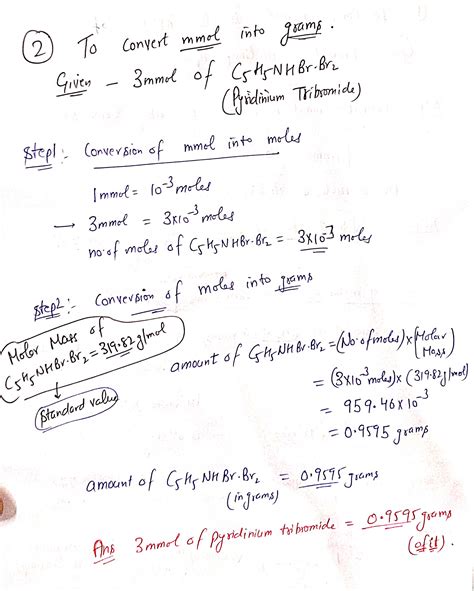 ② To convert mmol into grams.
Given - 3mmol of C5H5NHBr.Br2
(Pyridinium Tribromide)
Step1:- Conversion of mmol into moles
1mmol = 10^-3 moles
→ 3mmol = 3×10^-3 moles
no. of moles of C5H5NHBr.Br2 = 3×10^-3 moles
Step2:- Conversion of moles into grams
Molar Mass of
C5H5NHBr.Br2 = 319.82 g/mol
Standard value
amount of C5H5NHBr.Br2 = (No. of moles) × (Molar Mass)
= (3×10^-3 moles) × (319.82 g/mol)
= 959.46 × 10^-3
= 0.9595 grams
amount of C5H5NHBr.Br2 = 0.9595 grams
(in grams)
Ans 3mmol of pyridinium tribromide = 0.9595 grams
(of it)